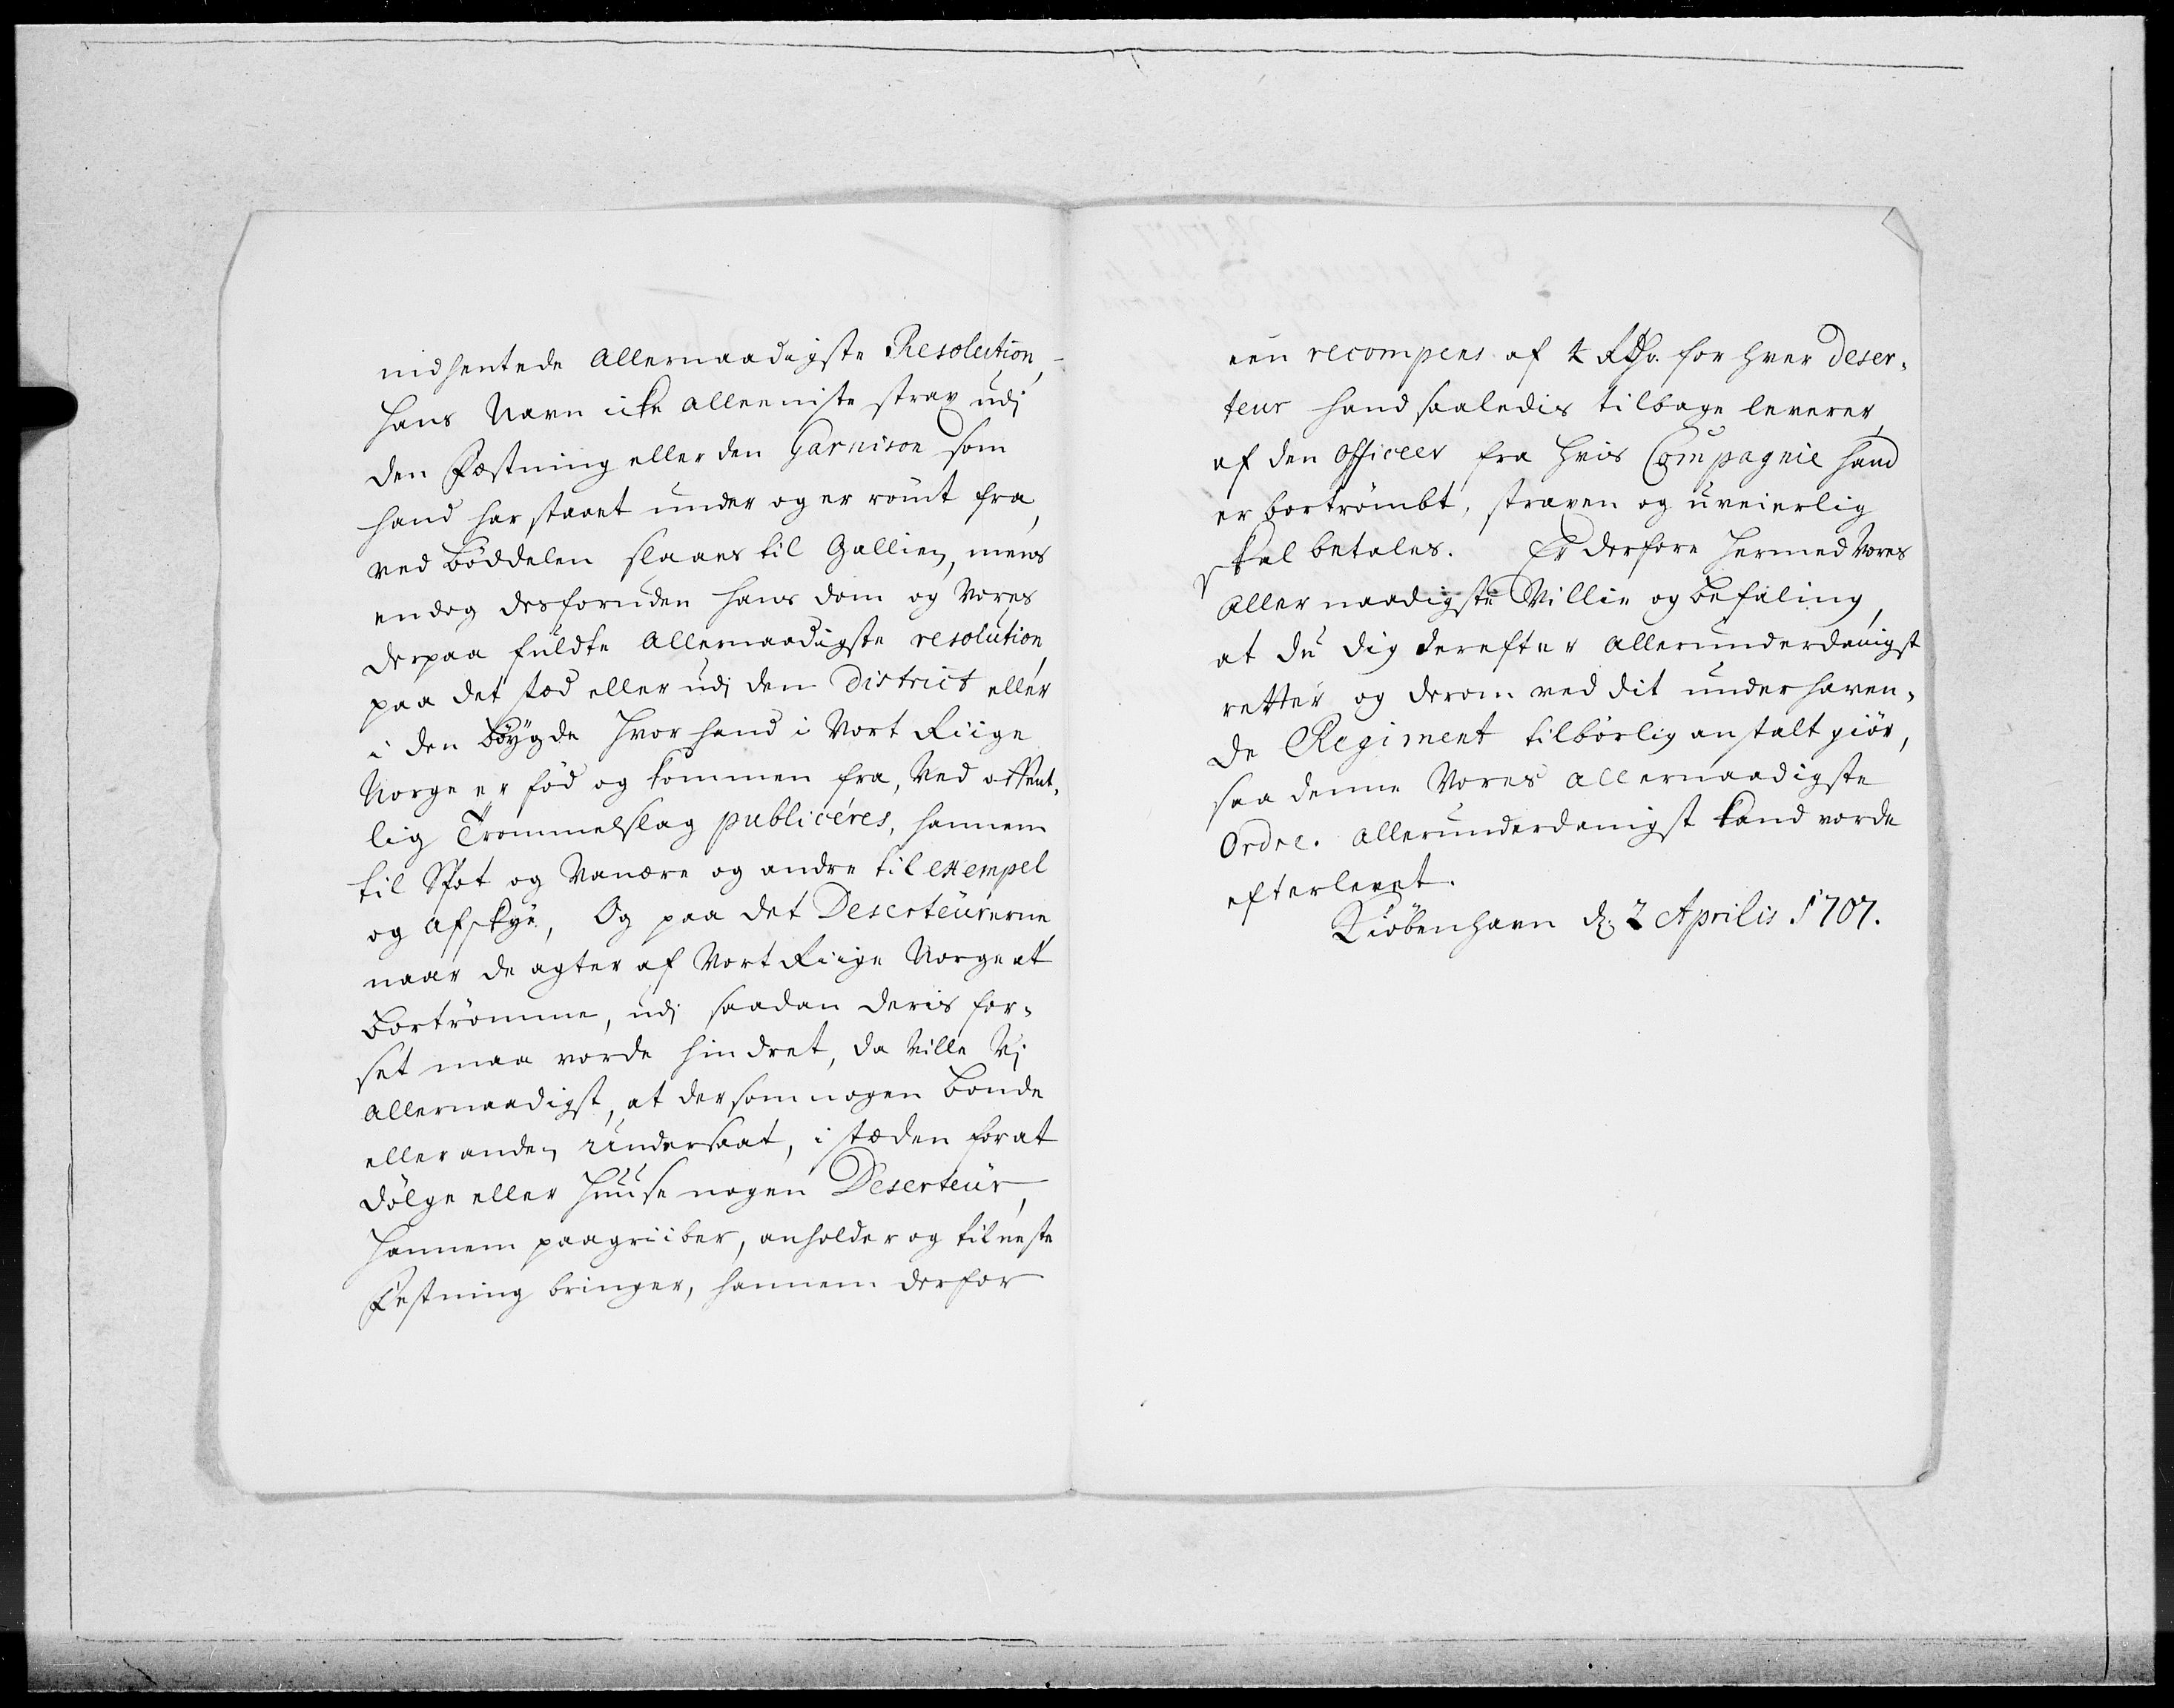 indhentede Allernaadigste Resolution,
hans Navn icke alleeniste strax udj
den Fæstning eller den Garnison som
hand har staaet under og er römt fra,
ved Böddelen slaaes til Gallien, mens
endog desforuden hans dom og Vores
derpaa fuldte Allernaadigste resolution,
paa det stod eller udj den District eller
i den Böygde hvor hand i Vort Riige
Norge er föd og kommen fra, Ved offent-
lig Trommelslag publiceres, hannem
til Spot og Vanære og andre til exempel
og afskye, Og paa det Deserteurerne,
naar de agter af Vort Riige Norge at
Bortrömme, udj saadan deris for-
set maa vorde hindret, da Ville Vj
allernaadigst, at dersom nogen Bonde
eller anden Undersaat, i stæden for at
dölge eller huuse nogen Deserteur,
hannem paagriiber, anholder og til neste
Festning bringer, hannem derfor
een recompens af 4 Rdr. for hver deser-
teur hand saaledis tilbage leverer,
af den Officeer fra hvis Compagnie hand
er bortrömbt, straxen og uveierlig
skal betales. Er derfore hermed Vores
Allernaadigste Villie og Befaling,
at du dig derefter allerunderdanigst
retter og derom ved dit underhaven-
de Regiment tilbörlig anstalt giör,
saa denne Vores allernaadigste
Ordre. allerunderdanigst kand vorde
efterlevet.
Kiöbenhavn d. 2 Aprilis 1707.